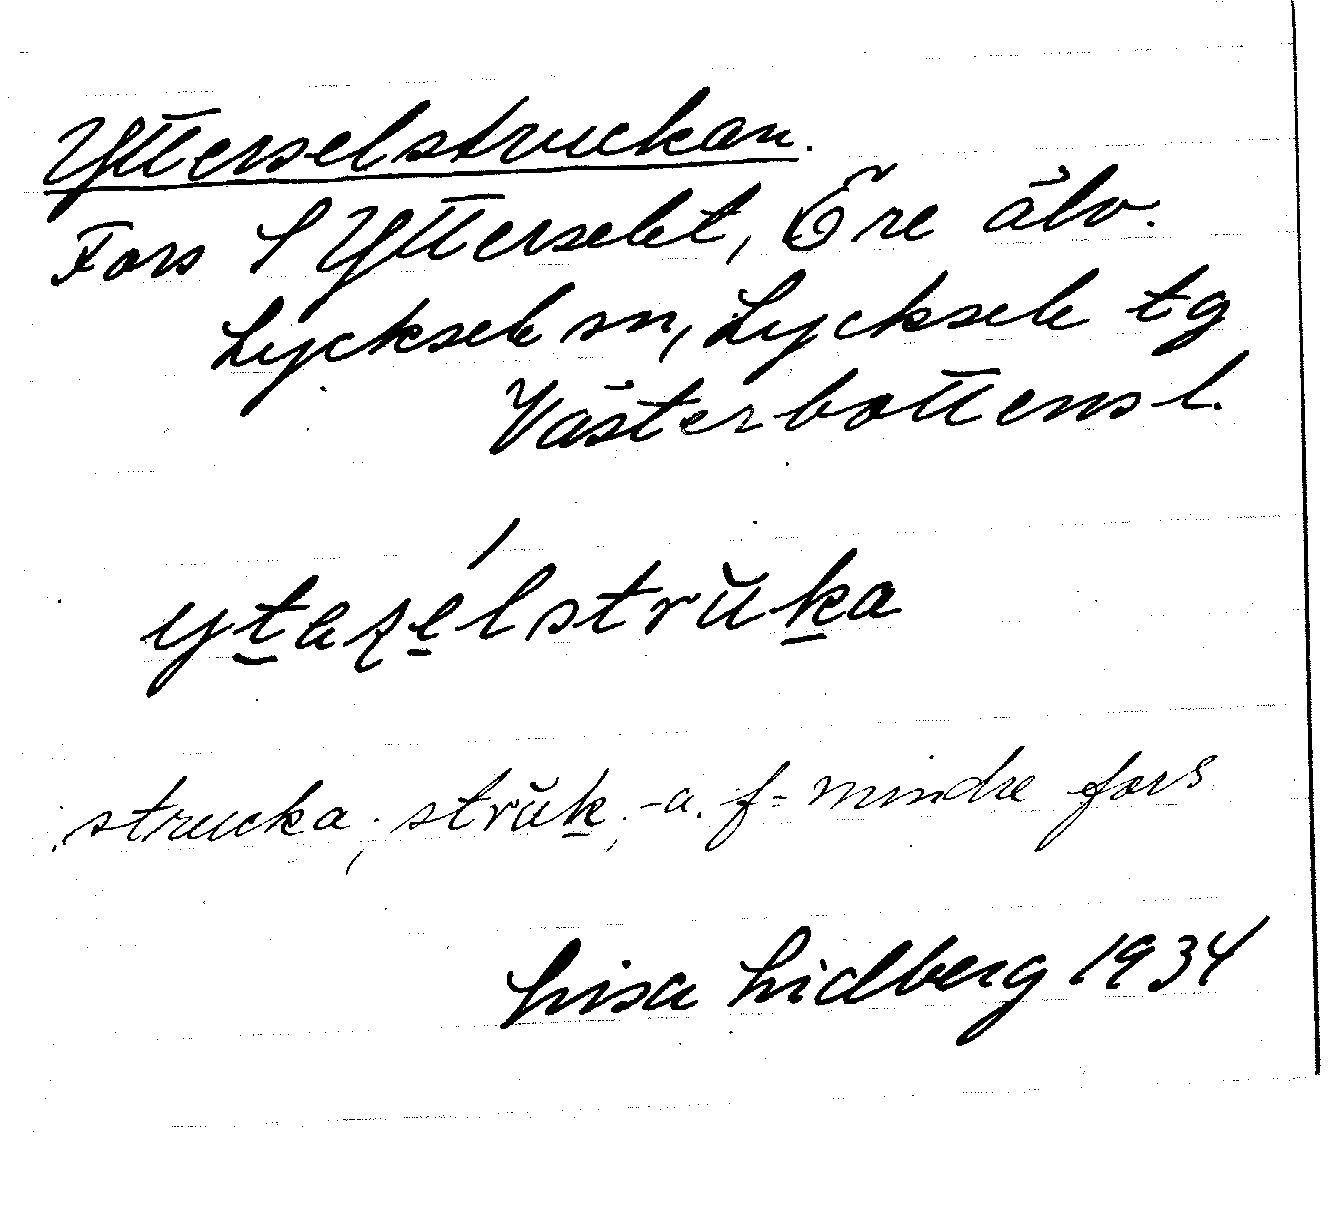 Ytterselstruckan.
Fors S Ytterselet, Öre älv.
Lycksele sn, Lycksele tg
Västerbottens l.
strucka; strŭk, -a. f = mindre fors
Lisa Lidberg 1934